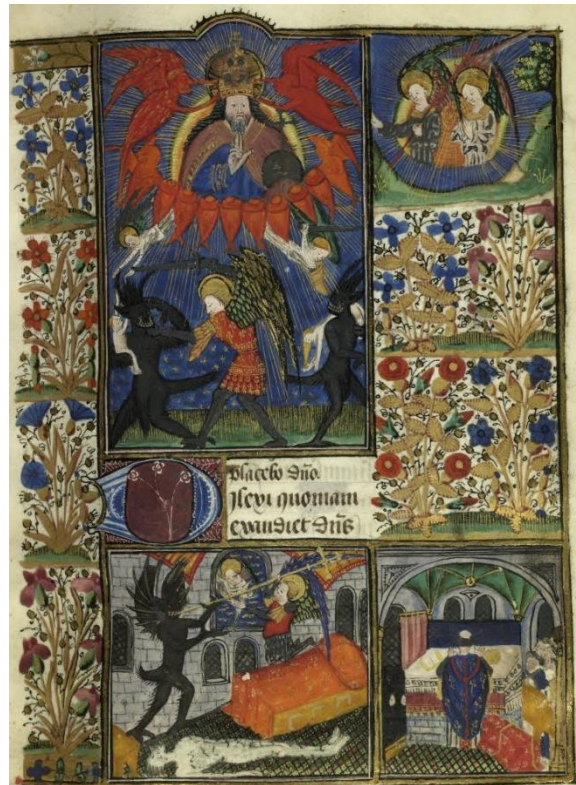 Placebo dño.
Dilexi quoniam
exaudiet dñs